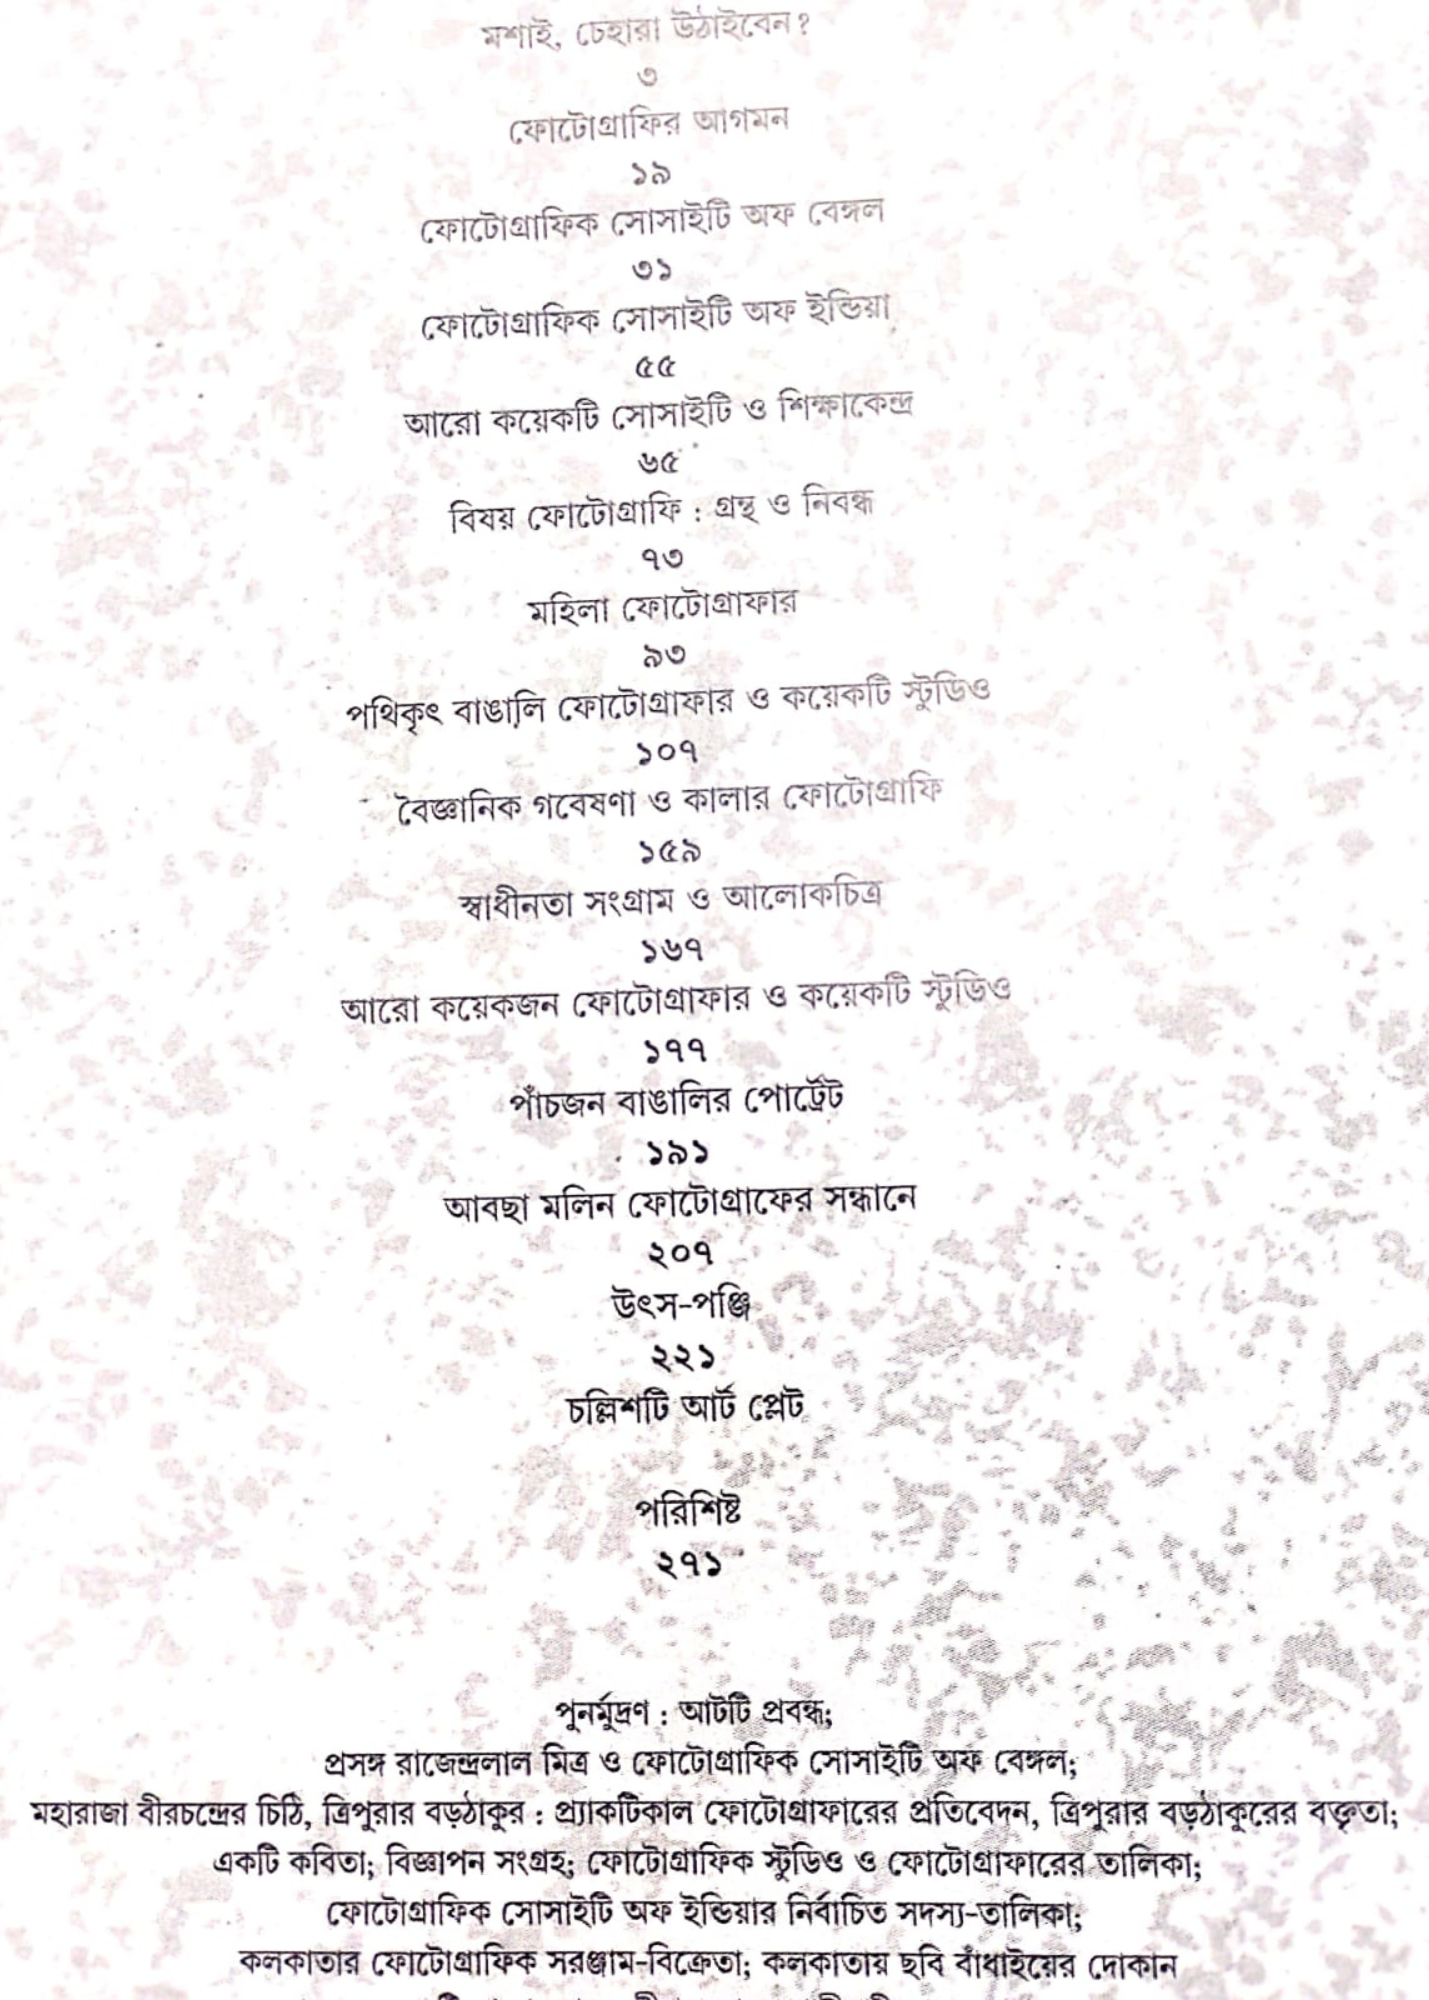 মশাই, চেহারা উঠাইবেন?
৩
ফোটোগ্রাফির আগমন
১৯
ফোটোগ্রাফিক সোসাইটি অফ বেঙ্গল
৩১
ফোটোগ্রাফিক সোসাইটি অফ ইন্ডিয়া
৫৫
আরো কয়েকটি সোসাইটি ও শিক্ষাকেন্দ্র
৬৫
বিষয় ফোটোগ্রাফি : গ্রন্থ ও নিবন্ধ
৭৩
মহিলা ফোটোগ্রাফার
৯৩
পথিকৃৎ বাঙালি ফোটোগ্রাফার ও কয়েকটি স্টুডিও
১০৭
বৈজ্ঞানিক গবেষণা ও কালার ফোটোগ্রাফি
১৫৯
স্বাধীনতা সংগ্রাম ও আলোকচিত্র
১৬৭
আরো কয়েকজন ফোটোগ্রাফার ও কয়েকটি স্টুডিও
১৭৭
পাঁচজন বাঙালির পোর্ট্রেট
১৯১
আবছা মলিন ফোটোগ্রাফের সন্ধানে
২০৭
উৎস-পঞ্জি
২২১
চল্লিশটি আর্ট প্লেট
পরিশিষ্ট
২৭১
পুনর্মুদ্রণ : আটটি প্রবন্ধ;
প্রসঙ্গ রাজেন্দ্রলাল মিত্র ও ফোটোগ্রাফিক সোসাইটি অফ বেঙ্গল;
মহারাজা বীরচন্দ্রের চিঠি, ত্রিপুরার বড়ঠাকুর : প্র্যাকটিকাল ফোটোগ্রাফারের প্রতিবেদন, ত্রিপুরার বড়ঠাকুরের বক্তৃতা;
একটি কবিতা; বিজ্ঞাপন সংগ্রহ; ফোটোগ্রাফিক স্টুডিও ও ফোটোগ্রাফারের তালিকা;
ফোটোগ্রাফিক সোসাইটি অফ ইন্ডিয়ার নির্বাচিত সদস্য-তালিকা;
কলকাতার ফোটোগ্রাফিক সরঞ্জাম-বিক্রেতা; কলকাতায় ছবি বাঁধাইয়ের দোকান